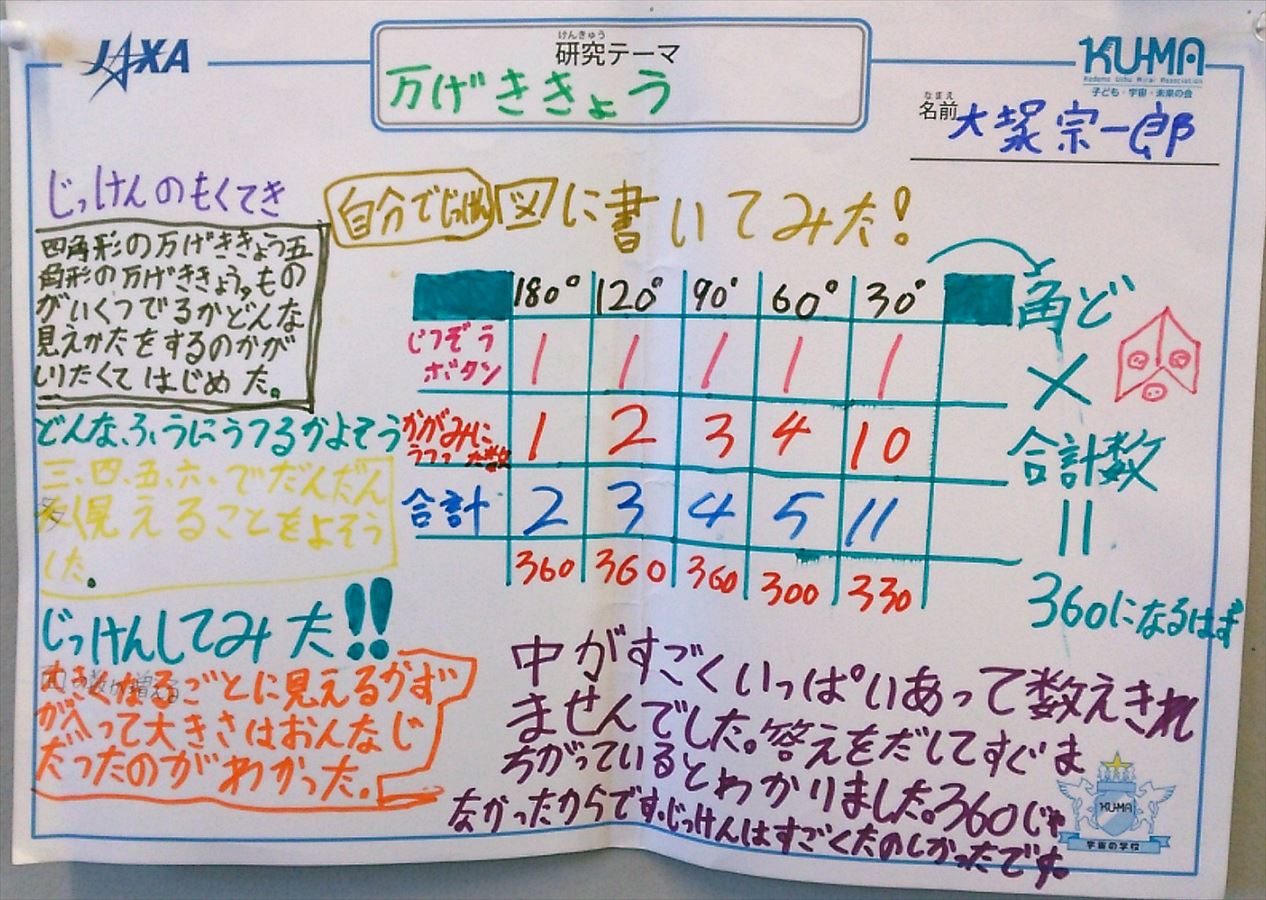 JAXA
けんきゅう
研究テーマ
万げききょう
KU-MA
Kodomo Uchu Mirai Association
子ども・宇宙・未来の会
なまえ
名前
大塚宗一郎
じっけんのもくてき
四角形の万げききょう五
角形の万げききょう。もの
がいくつでるかどんな
見えかたをするのかが
しりたくてはじめた。
どんなふうにうつるかよそう
三、四、五、六、でだんだん
多く見えることをよそう
した。
じっけんしてみた!!
大きくなるごとに見えるかず
が入って大きさはおんなじ
だったのがわかった。
自分でじっけん図に書いてみた!
180° 120° 90° 60° 30°
じつぞう
ボタン 1 1 1 1 1
かがみに
うつった数 1 2 3 4 10
合計 2 3 4 5 11
360 360 360 300 330
角ど
×
合計数
=
360になるはず
中がすごくいっぱいあって数えきれ
ませんでした。答えをだしてすぐま
ちがっているとわかりました。360じゃ
なかったからです。じっけんはすごくたのしかったです。
KU-MA
宇宙の学校